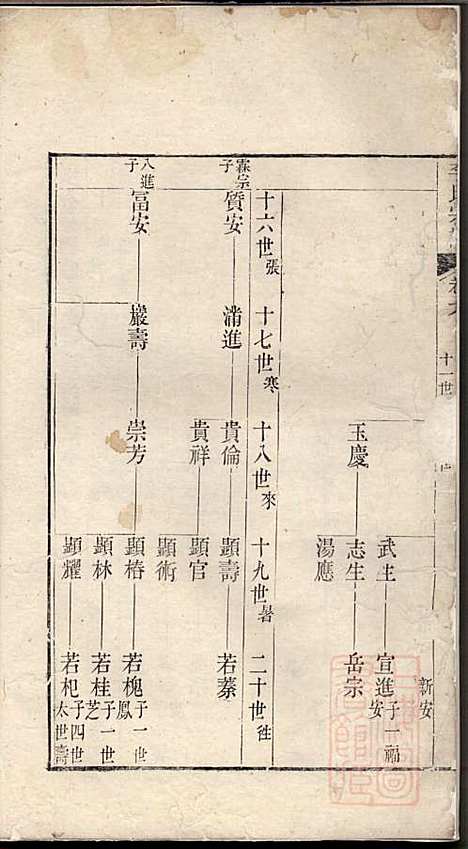 十一世
新安
武主 宣進 子一福安
玉慶 志生 岳宗
湯應
十六世張 十七世寒 十八世來 十九世暑 二十世徃
霖宗子 質安 滿進 貴倫 顯壽 若蓁
貴祥 顯官
顯術
八進子 富安 嚴壽 崇芳 顯椿 若槐 子一世鳳
顯林 若桂 子一世芝
顯耀 若杞 子四世太世壽